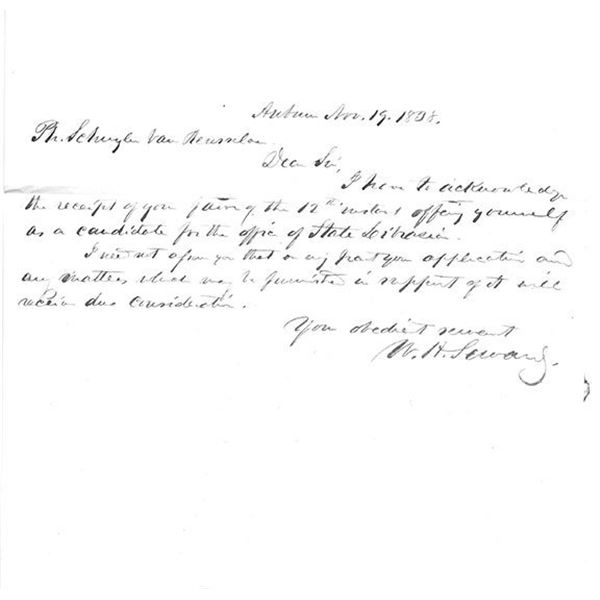 Auburn Nov. 19. 1838.
Ph. Schuyler Van Rensselaer
Dear Sir,
I have to acknowledge
the receipt of your favor of the 12th instant offering yourself
as a candidate for the office of State Librarian.
I need not assure you that on my part your application and
any matters which may be furnished in support of it will
receive due consideration.
Your obedient servant
W. H. Seward.